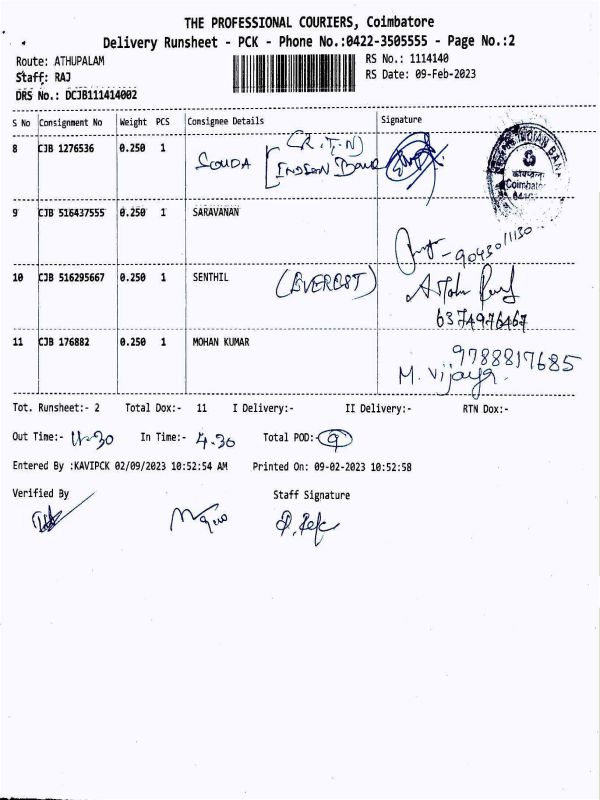 THE PROFESSIONAL COURIERS, Coimbatore
Delivery Runsheet - PCK - Phone No.:0422-3505555 - Page No.:2
Route: ATHUPALAM RS No.: 1114140
Staff: RAJ RS Date: 09-Feb-2023
DRS No.: DCJB111414002
S No Consignment No Weight PCS Consignee Details Signature
8 CJB 1276536 0.250 1 SOUDA (R.T.N)
[INDIAN Bank
INDIAN BANK
Coimbatore
9 CJB 516437555 0.250 1 SARAVANAN
10 CJB 516295667 0.250 1 SENTHIL (EVEREST)
6374976467
11 CJB 176882 0.250 1 MOHAN KUMAR 9788817685
M. Vijaya.
Tot. Runsheet:- 2 Total Dox:- 11 I Delivery:- II Delivery:- RTN Dox:-
Out Time:- 11.30 In Time:- 4.30 Total POD:- 9
Entered By :KAVIPCK 02/09/2023 10:52:54 AM Printed On: 09-02-2023 10:52:58
Verified By Staff Signature